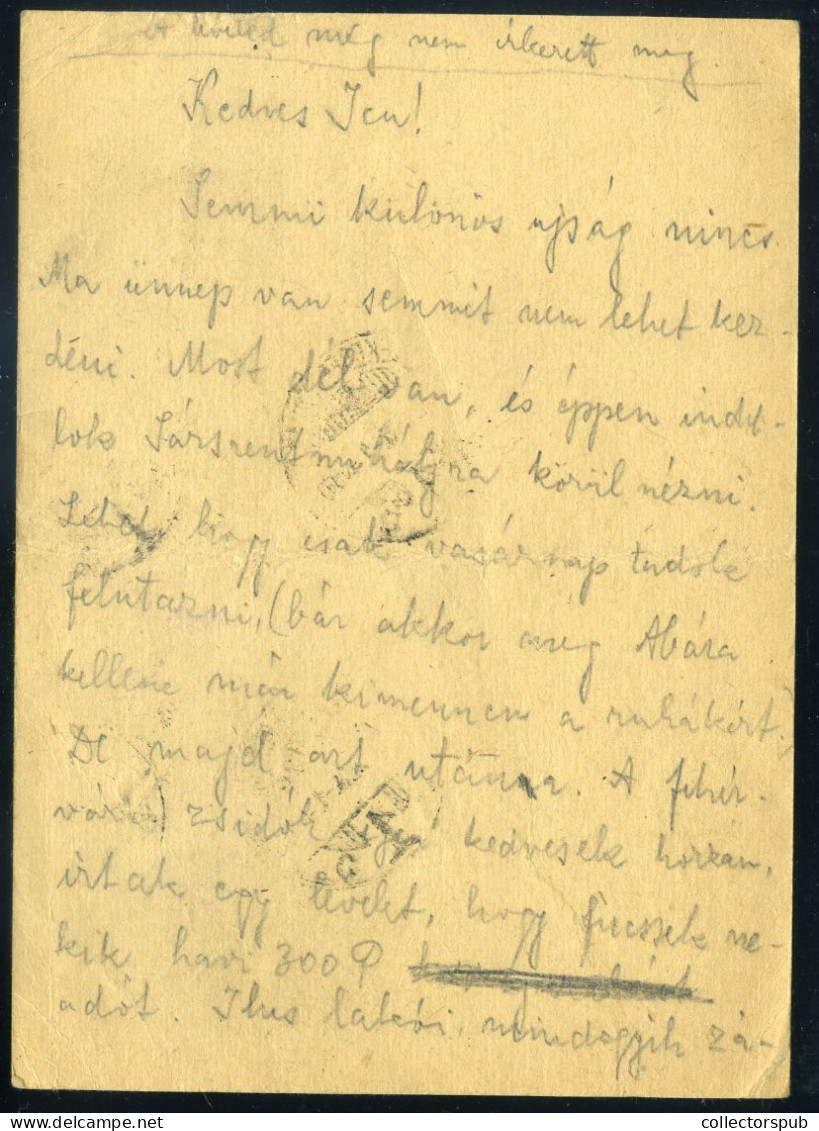 A leveled még nem érkezett meg.
Kedves Icu!
Semmi különös ujság nincs.
Ma ünnep van semmit nem lehet kez-
deni. Most dél van, és éppen indu-
lok Sárszentmihályra körül nézni.
Lehet hogy csak vasárnap tudok
felutazni, (bár akkor meg Abára
kellene már kimennem a ruhákért.)
De majd azt utánna. A fehér-
vári zsidók kedvesek hozzám,
írtak egy levelet, hogy fizessek ne-
kik havi 300 P
adót. Ilus lakói, mindegyik zá-
collectorspub